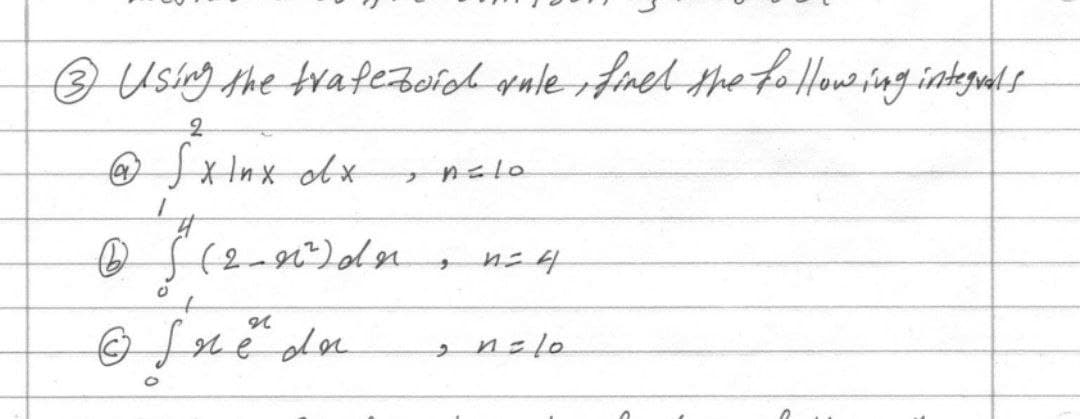 ③ Using the trapezoid rule, find the following integrals
ⓐ ∫₁² x ln x dx , n=10
ⓑ ∫₀⁴ (2-x²)dx , n=4
ⓒ ∫₀¹ xeˣ dx , n=10